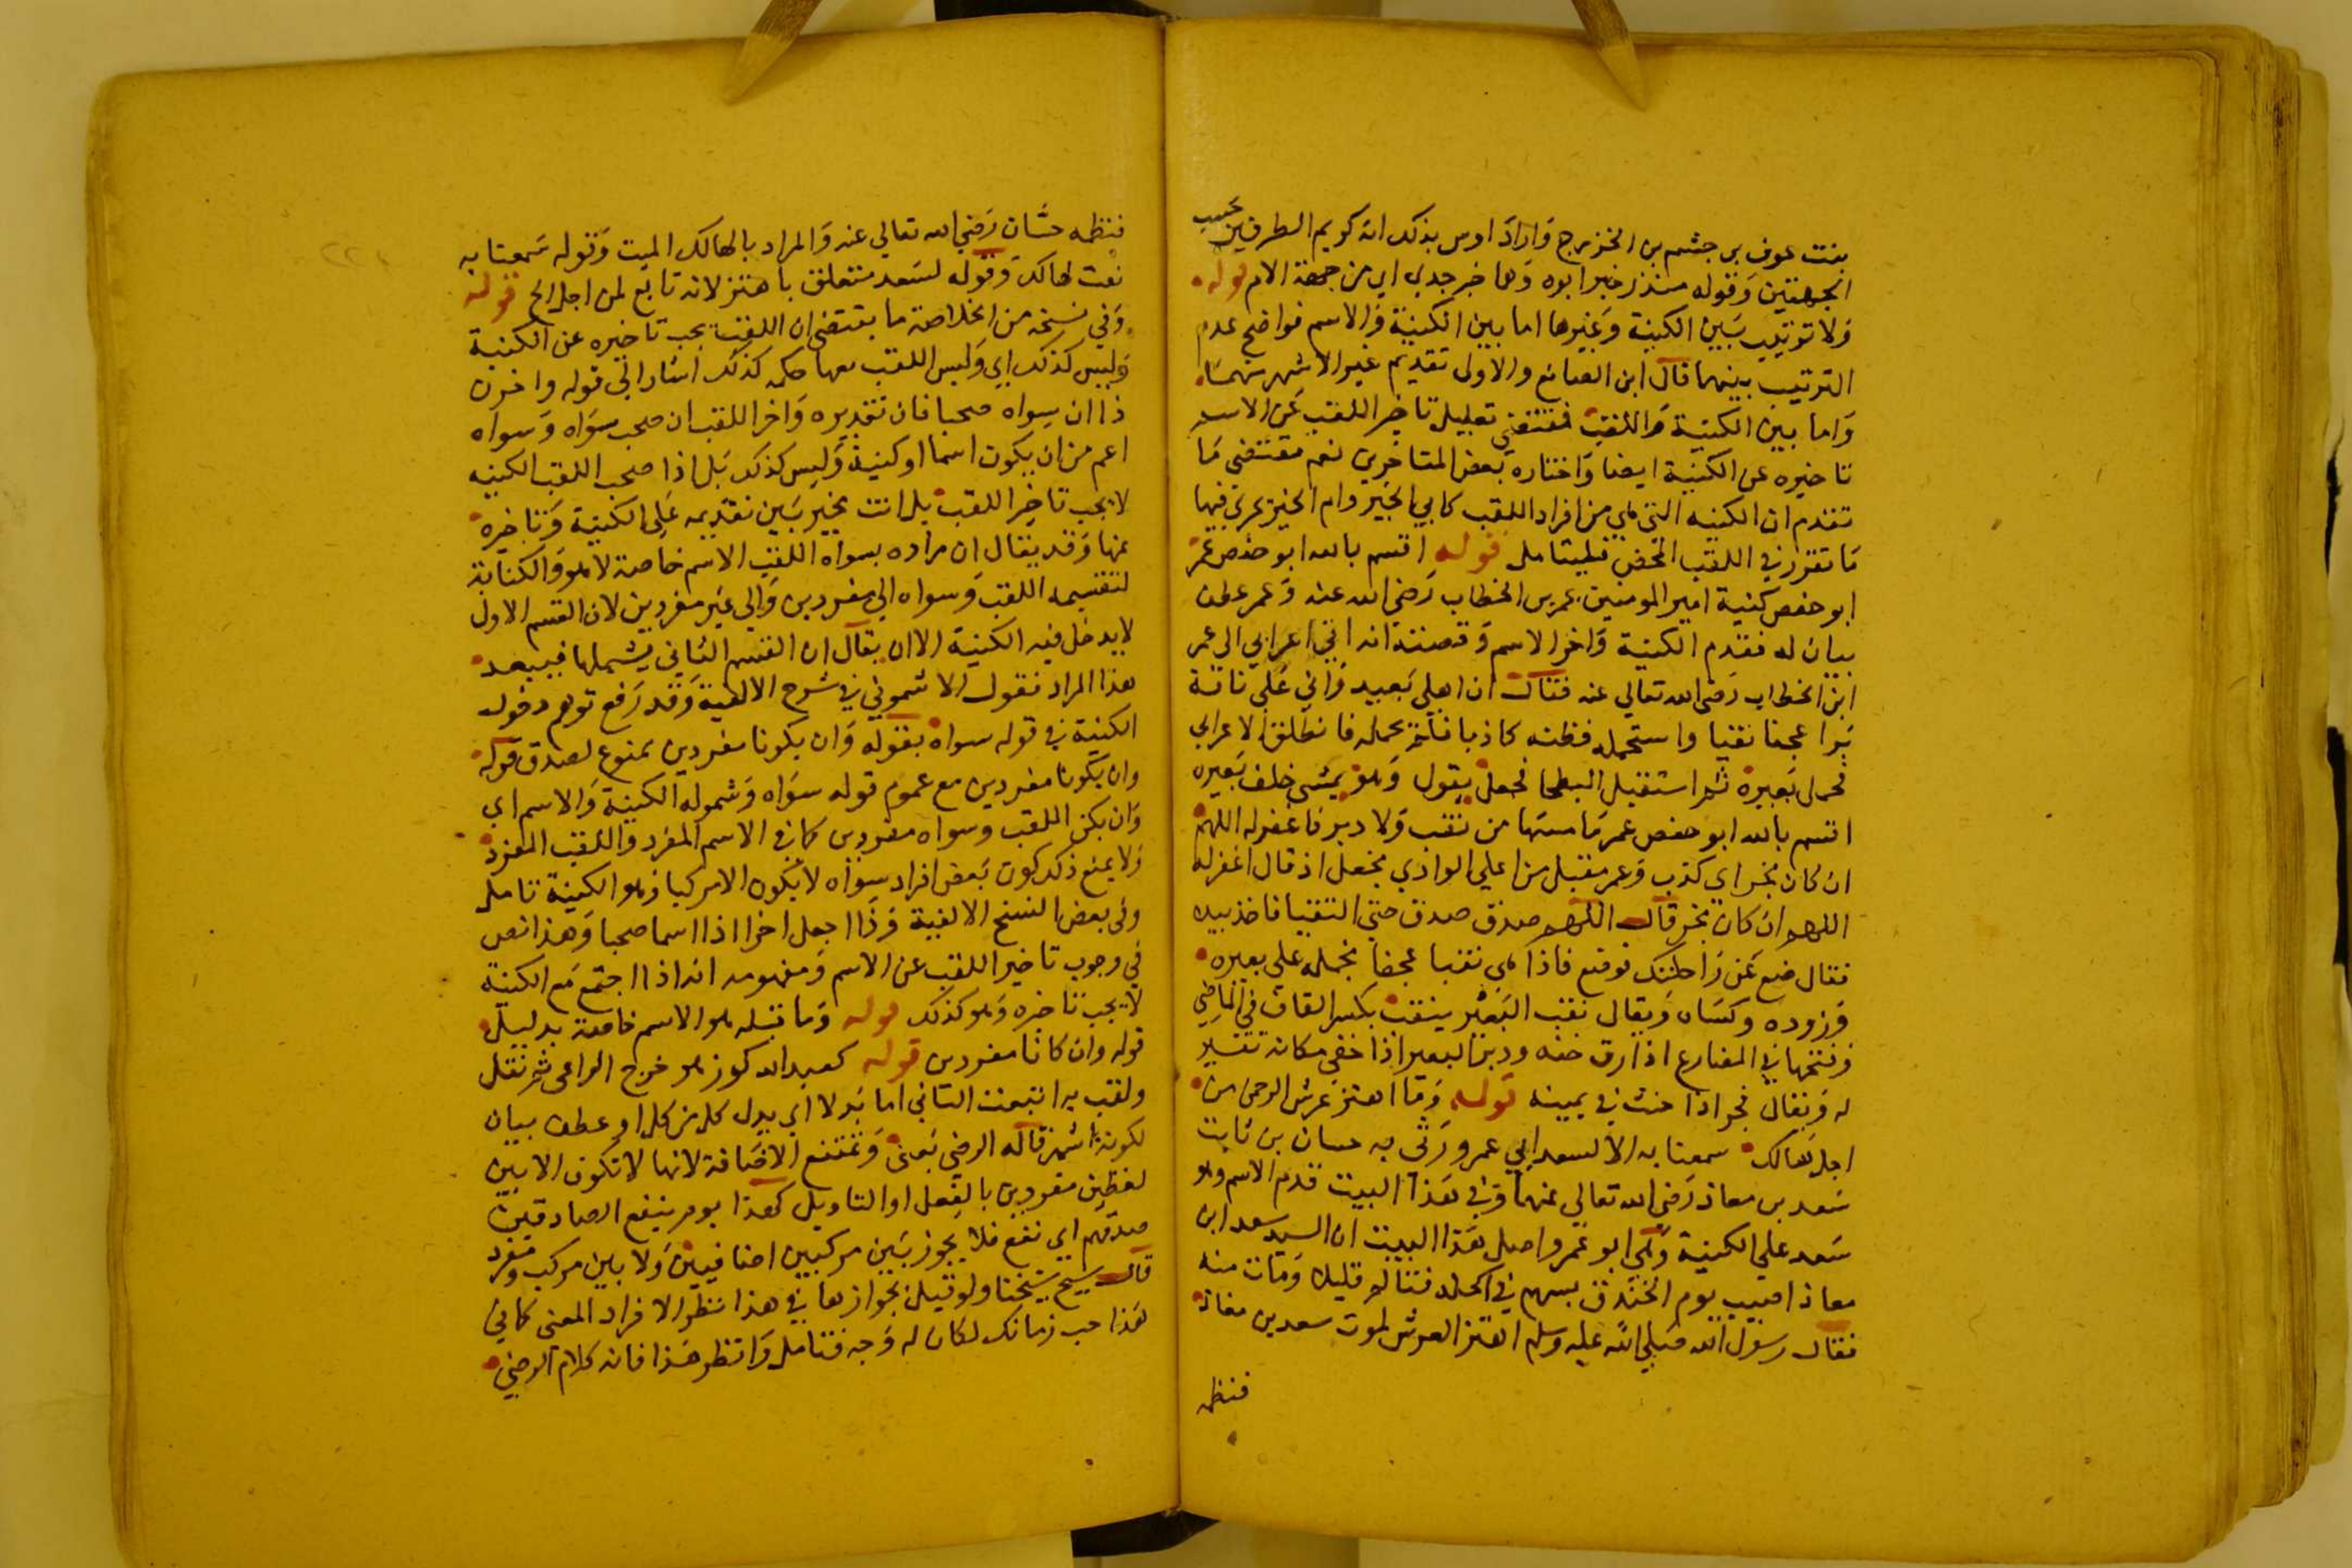 بنت عوف بن جشم بن الخزرج وَارَادَ اوس بذلك انه كريم الطرفين نجيب
الجهتين وَقوله منذر خبر ابوه وَها خبر جدي اي من جهة الام قوله
وَلا ترتيب بَين الكنية وَغيرها اما بين الكنية وَالاسم فواضح عدم
الترتيب بينهما قال ابن الصائغ والاولى تقديم غير الاشهر منهما
وَاما بين الكنية وَاللقب فمقتضى تعليل تاخير اللقب عَن الاسم
تاخيره عن الكنية ايضا وَاختاره بَعض المتاخرين نعم مقتضى مَا
تقدم ان الكنيه التي هي من افراد اللقب كابي الخير وام الخير يجري فيها
مَا تقرر في اللقب المحض فليتامل قوله اقسم بالله ابو حفص عمر
ابو حفص كنية امير المومنين عمر بن الخطاب رَضي الله عنه وَعمر عطف
بيان له فقدم الكنية وَاخر الاسم وَقصته انه اتى اعرابي الى عمر
ابن الخطاب رَضي الله تعالي عنه فقال ان اهلي بَعيد وَاني عَلى ناقة
دَبرا عجفا نقبا واستحمله فظنه كاذبا فلم يحمله فانطلق الاعرابي
فحمل بَعيره ثم استقبل البطحا فجعل يقول وَهو يمشي خلف بَعيره
اقسم بالله ابو حفص عمر مَا مسها من نقب وَلا دبر فاغفر له اللهم
ان كان فجر اي كذب وَعمر مقبل من اعلي الوادي فجعل اذ قال اغفر له
اللهم ان كان فجر قال اللهم صدق صدق حتي التقيا فاخذ بيده
فقال ضع عَن رَاحلتك فوضع فاذا هي نقبا عجفا فحمله على بعيره
وَزوده وكسَاه وَيقال نقب البَعير ينقب بكسر القاف في الماضي
وَفتحها في المضارع اذا رق خفه ودبر البعير اذا خفي مكانه تفسير
له وَيقال فجر اذا حنث في يمينه قوله وَمَا اهتز عرش الرحمن من
اجل هَالك سمعنا به الا لسعد ابي عمرو رَثى به حسان بن ثابت
سَعد بن معاذ رَضي الله تعالي عنهما وَفي هَذا البيت قدم الاسم وهو
سَعد علي الكنية وَهي ابو عَمرو اصل هَذا البيت ان السيد سعد ابن
معاذ اصيب يوم الخندق بسهم في اكحله فتاله قليلا وَمَات منه
فقال رسول الله صَلي الله عليه وسلم اهتز العرش لموت سعد بن معاذ
فنظمه
فنظمه حسَّان رَضي الله تعالي عنه وَالمراد بالهالك الميت وَقوله سَمعنا به
نعت لهالك وَقوله لسَعد متعلق باهتز لانه تابع لمن اجل الخ قوله
وَفي نسخة من الخلاصة ما يقتضي ان اللقب يجب تاخيره عن الكنية
وَليس كذلك اي وَليس اللقب معها حكمه كذلك اشار الى قوله واخرن
ذا ان سواه صحبا فان تقديره وَاخر اللقب ان صحب سوَاه وَسواه
اعم من ان يكون اسما او كنية وَليس كذلك بَل اذا صحب اللقب الكنيه
لا يجب تاخير اللقب بل انت مخير بَين تقديمه عَلى الكنية وَتاخيره
عنها وَقد يقال ان مراده بسواه اللقب الاسم خاصة لا هو وَالكناية
لتقسيمه اللقب وَسواه الى مفردين وَالي غير مفردين لان القسم الاول
لا يدخل فيه الكنية الا ان يقال ان القسم الثاني يشملها فيبعد
هذا المراد فقول الاشموني في شرح الالفية وَقد رَفع توهم دخول
الكنية في قوله سواه بقوله وَان يكونا مفردين ممنوع لصدق قوله
وان يكونا مفردين مع عموم قوله سوَاه وَشموله الكنية وَالاسم اي
وَان يكن اللقب وسواه مفردين كما في الاسم المفرد وَاللقب المفرد
وَلا يمنع ذلك كون بَعض افراد سِوَاه لا يكون الا مركبا وَهو الكنية تامل
وفي بعض النسخ الالفية وَذَا اجعل اخرا اذا اسما صحبا وَهذا نص
في وجوب تاخير اللقب عن الاسم وَمفهومه انه اذا اجتمع مَع الكنية
لا يجب تاخيره وَهو كذلك قوله وَما قبله هو الاسم خاصة بدليل
قوله وان كانا مفردين قوله كعبد الله كرز هو خرج الراعى ثم نقل
ولقب به اتبعت الثاني اما بَدلا اي بدل كل من كل او عطف بيان
لكونه اشهر قاله الرضي يَعني وَتمتنع الاضَافة لانها لا تكون الا بين
لفظين مفردين بالفعل او التاويل كهذا يوم ينفع الصادقين
صدقهم اي نفع فلا يجوز بَين مركبين اضافيين وَلا بين مركب ومفرد
قال شيخ شيخنا ولو قيل بجوازها في هذا نظرا لافراد المعنى كما في
هَذا حب زمانك لكان له وَجه فتامل وَانظر هَذا فانه كلام الرضي